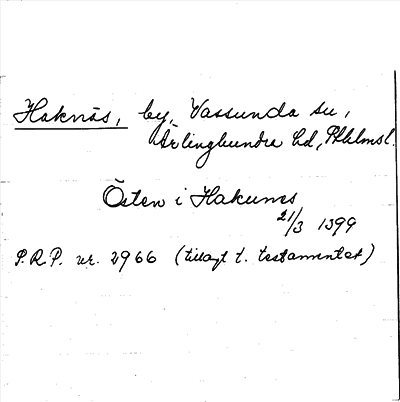 Haknäs, by, Vassunda sn,
Ärlinghundra hd, Sthlmsl.
Östen i Hakunæs
21/3 1399
S.R.P. nr. 2966 (tillagt t. testamentet)